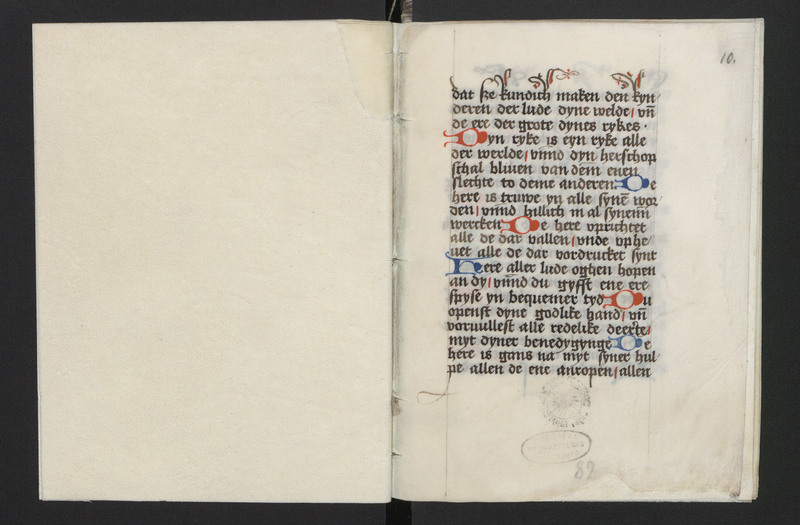 10.
dat sze kundich maken den kyn
deren der lude dyne welde / vn̄
de ere der grote dynes rykes ·
Dyn ryke is eyn ryke alle
der werlde / vnnd dyn herschop
schal bliuen van dem̄ enen
slechte to deme anderen. De
here is truwe yn alle synē wor
den / vnnd hillich in al synenn
wercken De here vprichtet
alle de dar vallen / vnde vphe
uet alle de dar vordrucket synt
Here aller lude oghen hopen
an dy / vnnd du gyfft ene ere
spyse yn bequemer tyd Du
openst dyne godlike hand / vn̄
voruullest alle redelike deerte /
myt dyner benedygynge De
here is gans na myt syner hul
pe allen de ene anropen / allen
82